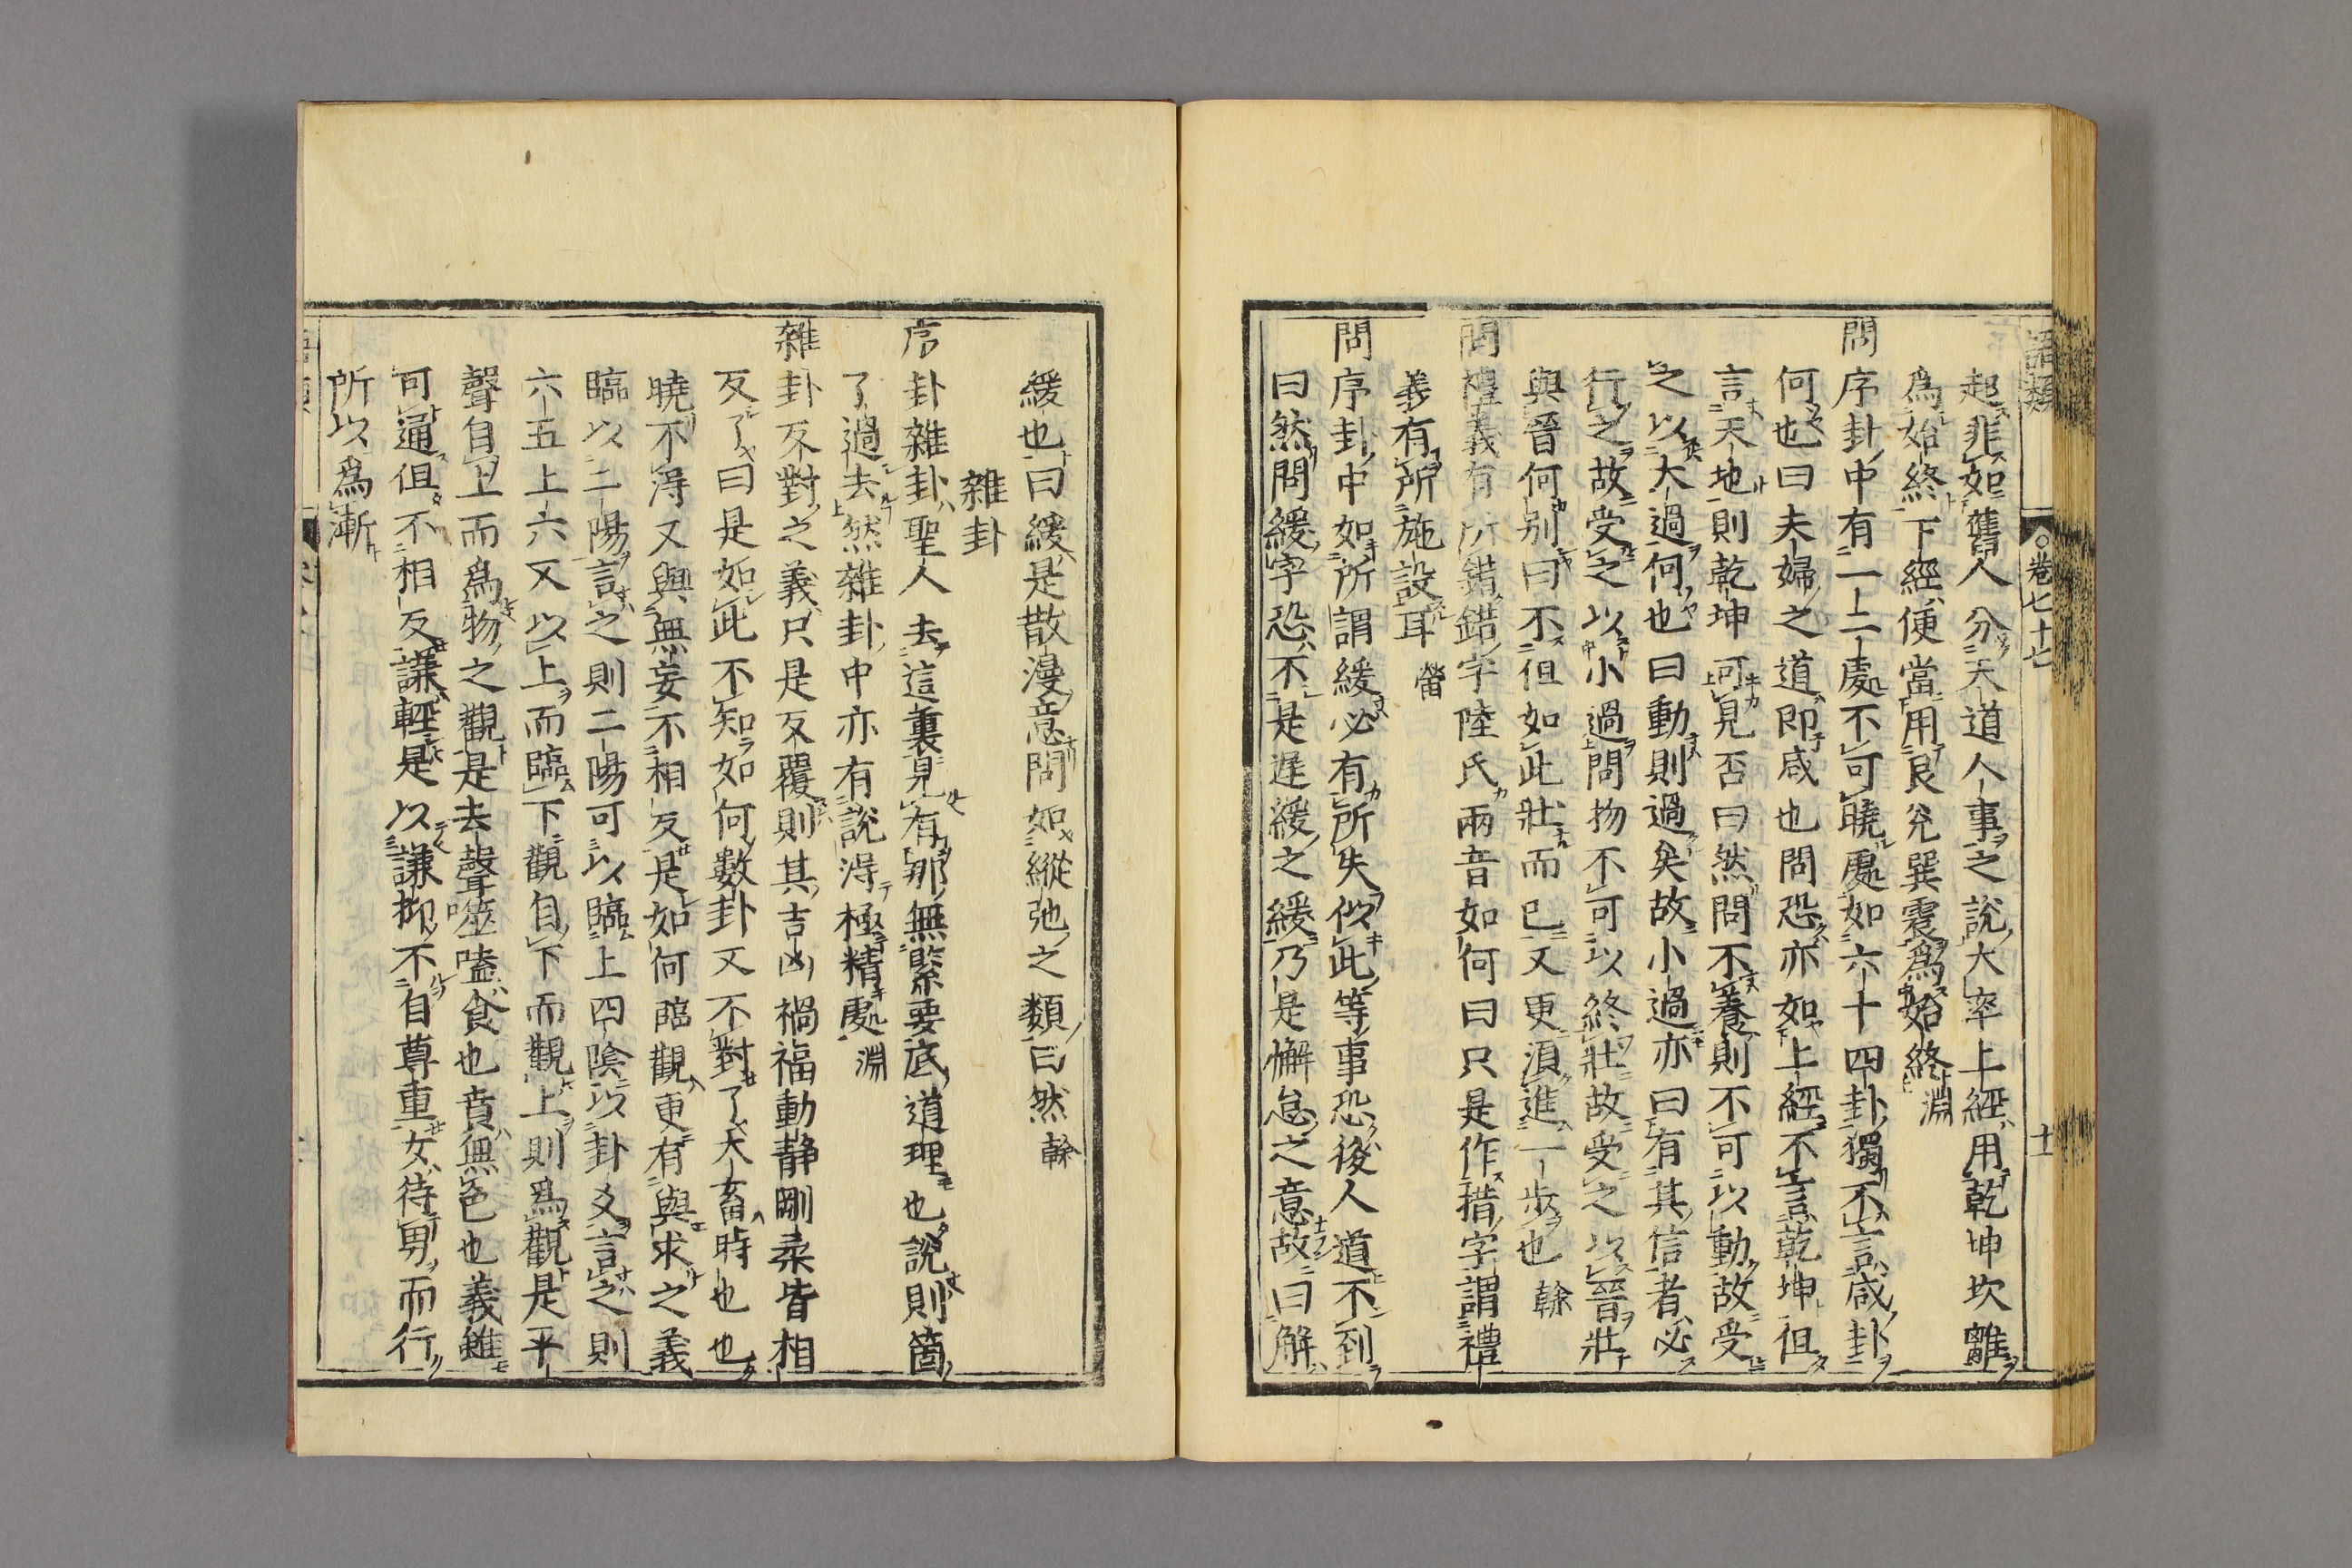 語類 卷七十七 十一
起非如舊人分天道人事之說大率上經用乾坤坎離
爲始終下經便當用艮兌巽震爲始終 淵
問序卦中有一二處不可曉處如六十四卦獨不言咸卦
何也曰夫婦之道即咸也問恐亦如上經不言乾坤但
言天地則乾坤可見否曰然問不養則不可以動故受
之以大過何也曰動則過矣故小過亦曰有其信者必
行之故受之以小過問物不可以終壯故受之以晉壯
與晉何別曰不但如此壯而已又更須進一步也 榦
問禮義有所錯錯字陸氏兩音如何曰只是作措字謂禮
義有所施設耳 㽦
問序卦中如所謂緩必有所失似此等事恐後人道不到
曰然問緩字恐不是遲緩之緩乃是懈怠之意故曰解
緩也曰緩是散漫意問如縱弛之類曰然 榦
雜卦
序卦雜卦聖人去這裏見有那無緊要底道理也說則箇
了過去然雜卦中亦有說得極精處 淵
雜卦反對之義只是反覆則其吉凶禍福動靜剛柔皆相
反了曰是如此不知如何數卦又不對了大畜時也也
曉不得又與無妄不相反是如何臨觀更有與求之義
臨以二陽言之則二陽可以臨上四陰以卦爻言之則
六五上六又以上而臨下觀自下而觀上則爲觀是平
聲自上而爲物之觀是去聲噬嗑食也賁無色也義雖
可通但不相反謙輕是以謙抑不自尊重女待男而行
所以爲漸